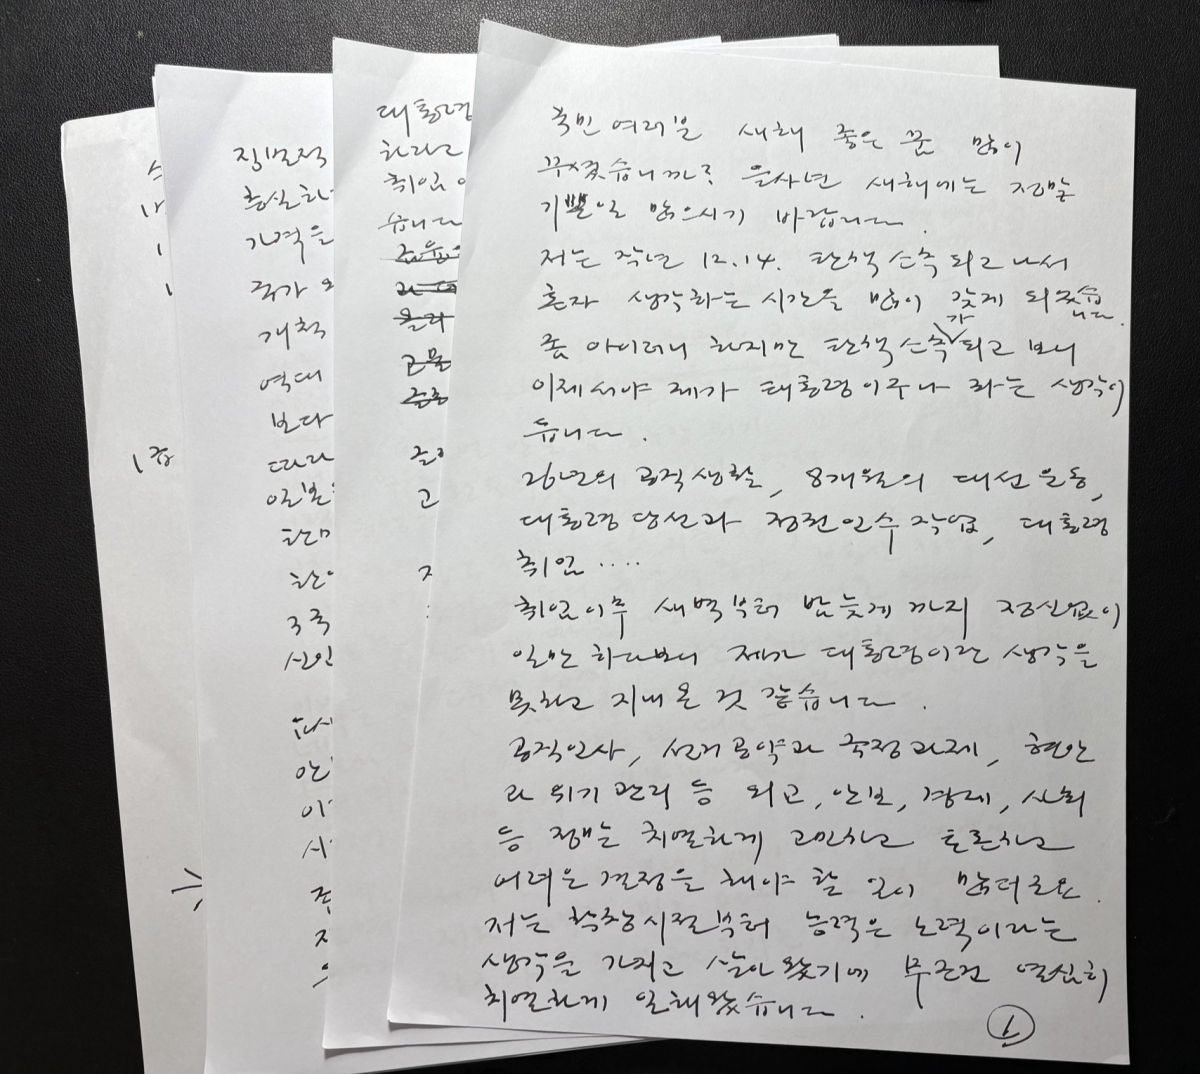 국민 여러분 새해 좋은 꿈 많이
꾸셨습니까? 을사년 새해에는 정말
기쁠일 많으시기 바랍니다.
저는 작년 12.14. 탄핵 소추 되고 나서
혼자 생각하는 시간을 많이 갖게 되었습
니다.
좀 아이러니 하지만 탄핵 소추가 되고 보니
이제서야 제가 대통령이구나 라는 생각이
듭니다.
26년의 공직생활, 8개월의 대선 운동,
대통령 당선과 정권인수 작업, 대통령
취임 ‥‥
취임이후 새벽부터 밤늦게 까지 정신없이
일만 하다보니 제가 대통령이란 생각을
못하고 지내 온 것 같습니다.
공직인사, 선거공약과 국정과제, 현안
과 위기 관리 등 외교, 안보, 경제, 사회
등 정말 치열하게 고민하고 토론하고
어려운 결정을 해야 할 일이 많더군요.
저는 학창시절부터 능력은 노력이라는
생각을 가지고 살아 왔기에 무조건 열심히
치열하게 일해왔습니다.
1
대통령
하라고
취임
습니다
고
집무적
충실하
가격을
국가
개척
역대
보다
따라
일본
한미
3국